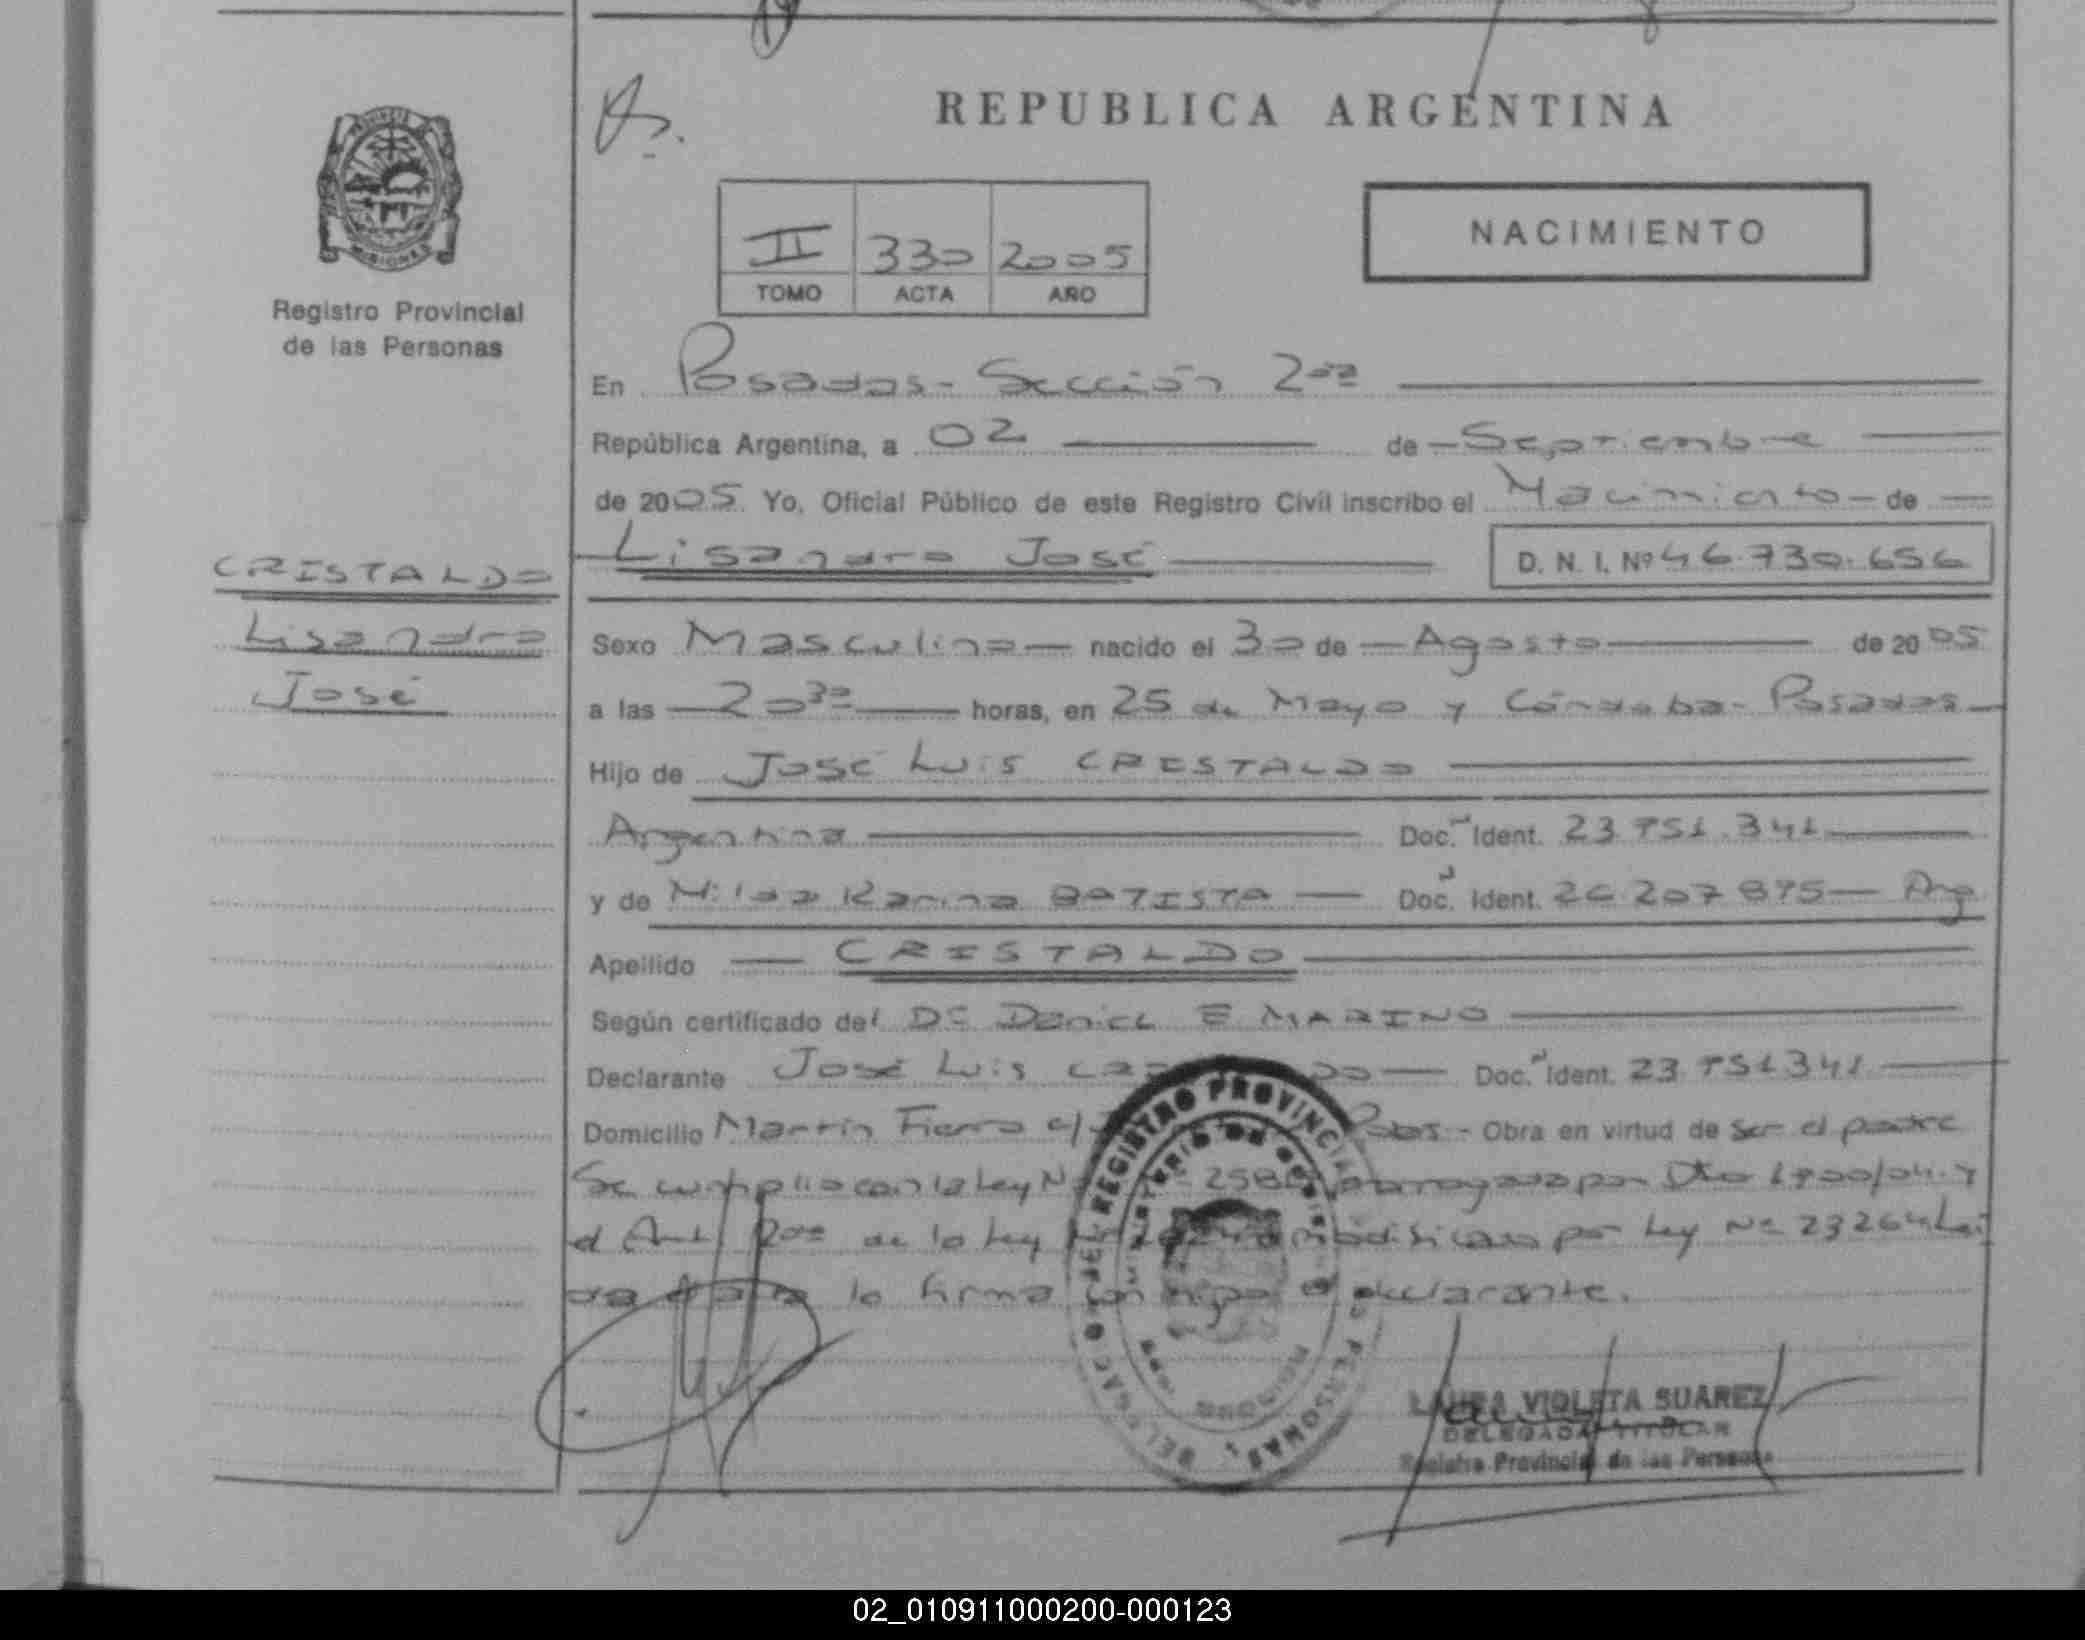 REPUBLICA ARGENTINA
PROVINCIA DE
MISIONES
Registro Provincial
de las Personas
II 330 2005
TOMO ACTA AÑO
NACIMIENTO
En Posadas - Sección 2da
República Argentina, a 02 de Septiembre
de 2005. Yo, Oficial Público de este Registro Civil inscribo el Nacimiento de
Lisandro José D. N. I. Nº 46.730.656
CRISTALDO
Lisandro
José
Sexo Masculino nacido el 30 de Agosto de 2005
a las 20 30 horas, en 25 de Mayo y Córdoba - Posadas
Hijo de José Luis CRISTALDO
Argentina Doc. Ident. 23.951.341
y de Nilda Karina BATISTA Doc. Ident. 26.207.895 Arg
Apellido CRISTALDO
Según certificado del Dr Daniel E MARINO
Declarante José Luis Doc. Ident. 23 951 341
Domicilio Martín Fierro c/ Pdas - Obra en virtud de ser el padre
Se cumplio con la Ley por Dto 1900/04. Y
el Art 2do de la Ley modificado por Ley Nº 23264 Leí
da el acta la firma conmigo el declarante.
DELEGAC DEL REGISTRO PROVINCIAL PERSONAS
MINISTERIO DE
LAURA VIOLETA SUAREZ
DELEGADA TITULAR
Registro Provincial de las Personas
02_010911000200-000123